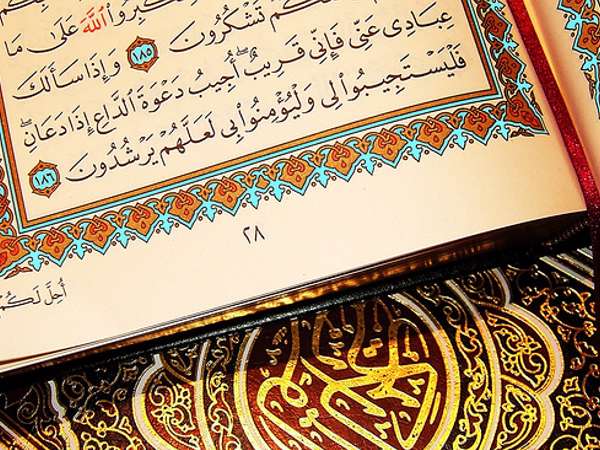 كُمْ تَشْكُرُونَ ١٨٥ وَإِذَا سَأَلَكَ
عِبَادِى عَنِّى فَإِنِّى قَرِيبٌ ۖ أُجِيبُ دَعْوَةَ ٱلدَّاعِ إِذَا دَعَانِ ۖ
فَلْيَسْتَجِيبُوا۟ لِى وَلْيُؤْمِنُوا۟ بِى لَعَلَّهُمْ يَرْشُدُونَ ١٨٦
٢٨
أُحِلَّ لَكُمْ